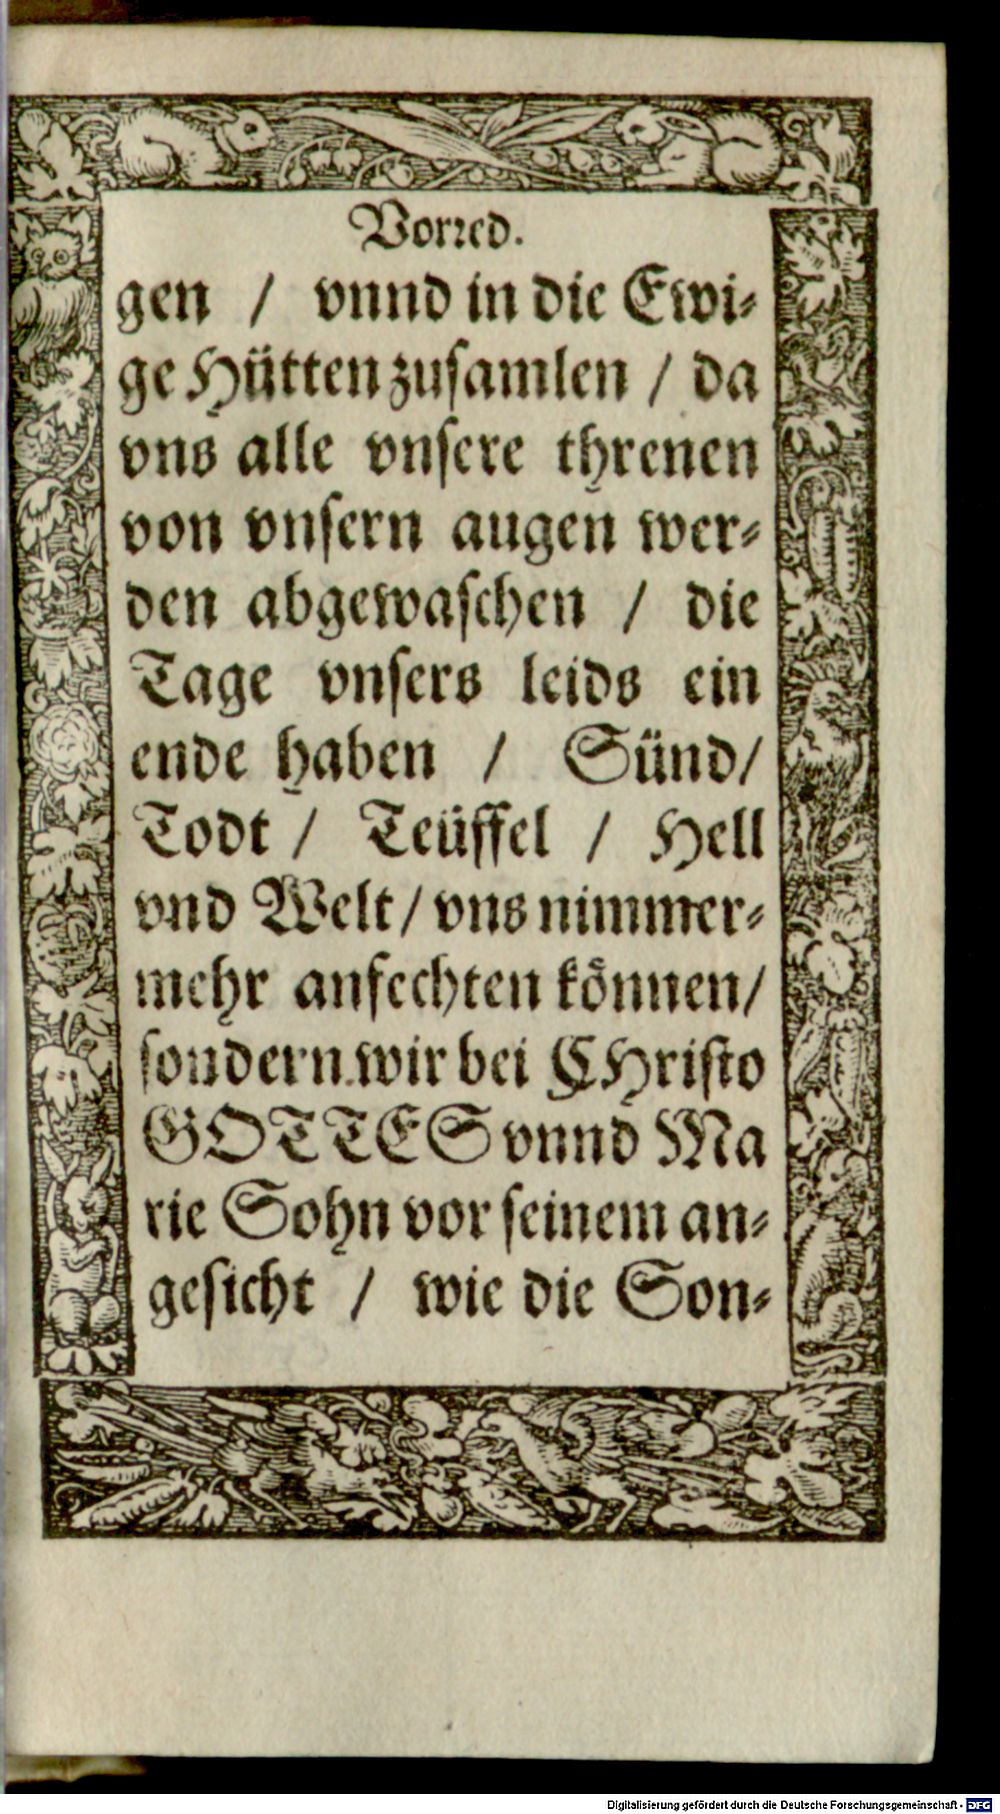 Vorred.
gen / vnnd in die Ewi-
ge Hütten zusamlen / da
vns alle vnsere threnen
von vnsern augen wer-
den abgewaschen / die
Tage vnsers leids ein
ende haben / Sünd/
Todt / Teüffel / Hell
vnd Welt/ vns nimmer-
mehr anfechten können/
sondern wir bei CHristo
GOTTES vnnd Ma
rie Sohn vor seinem an-
gesicht / wie die Son-
Digitalisierung gefördert durch die Deutsche Forschungsgemeinschaft - DFG